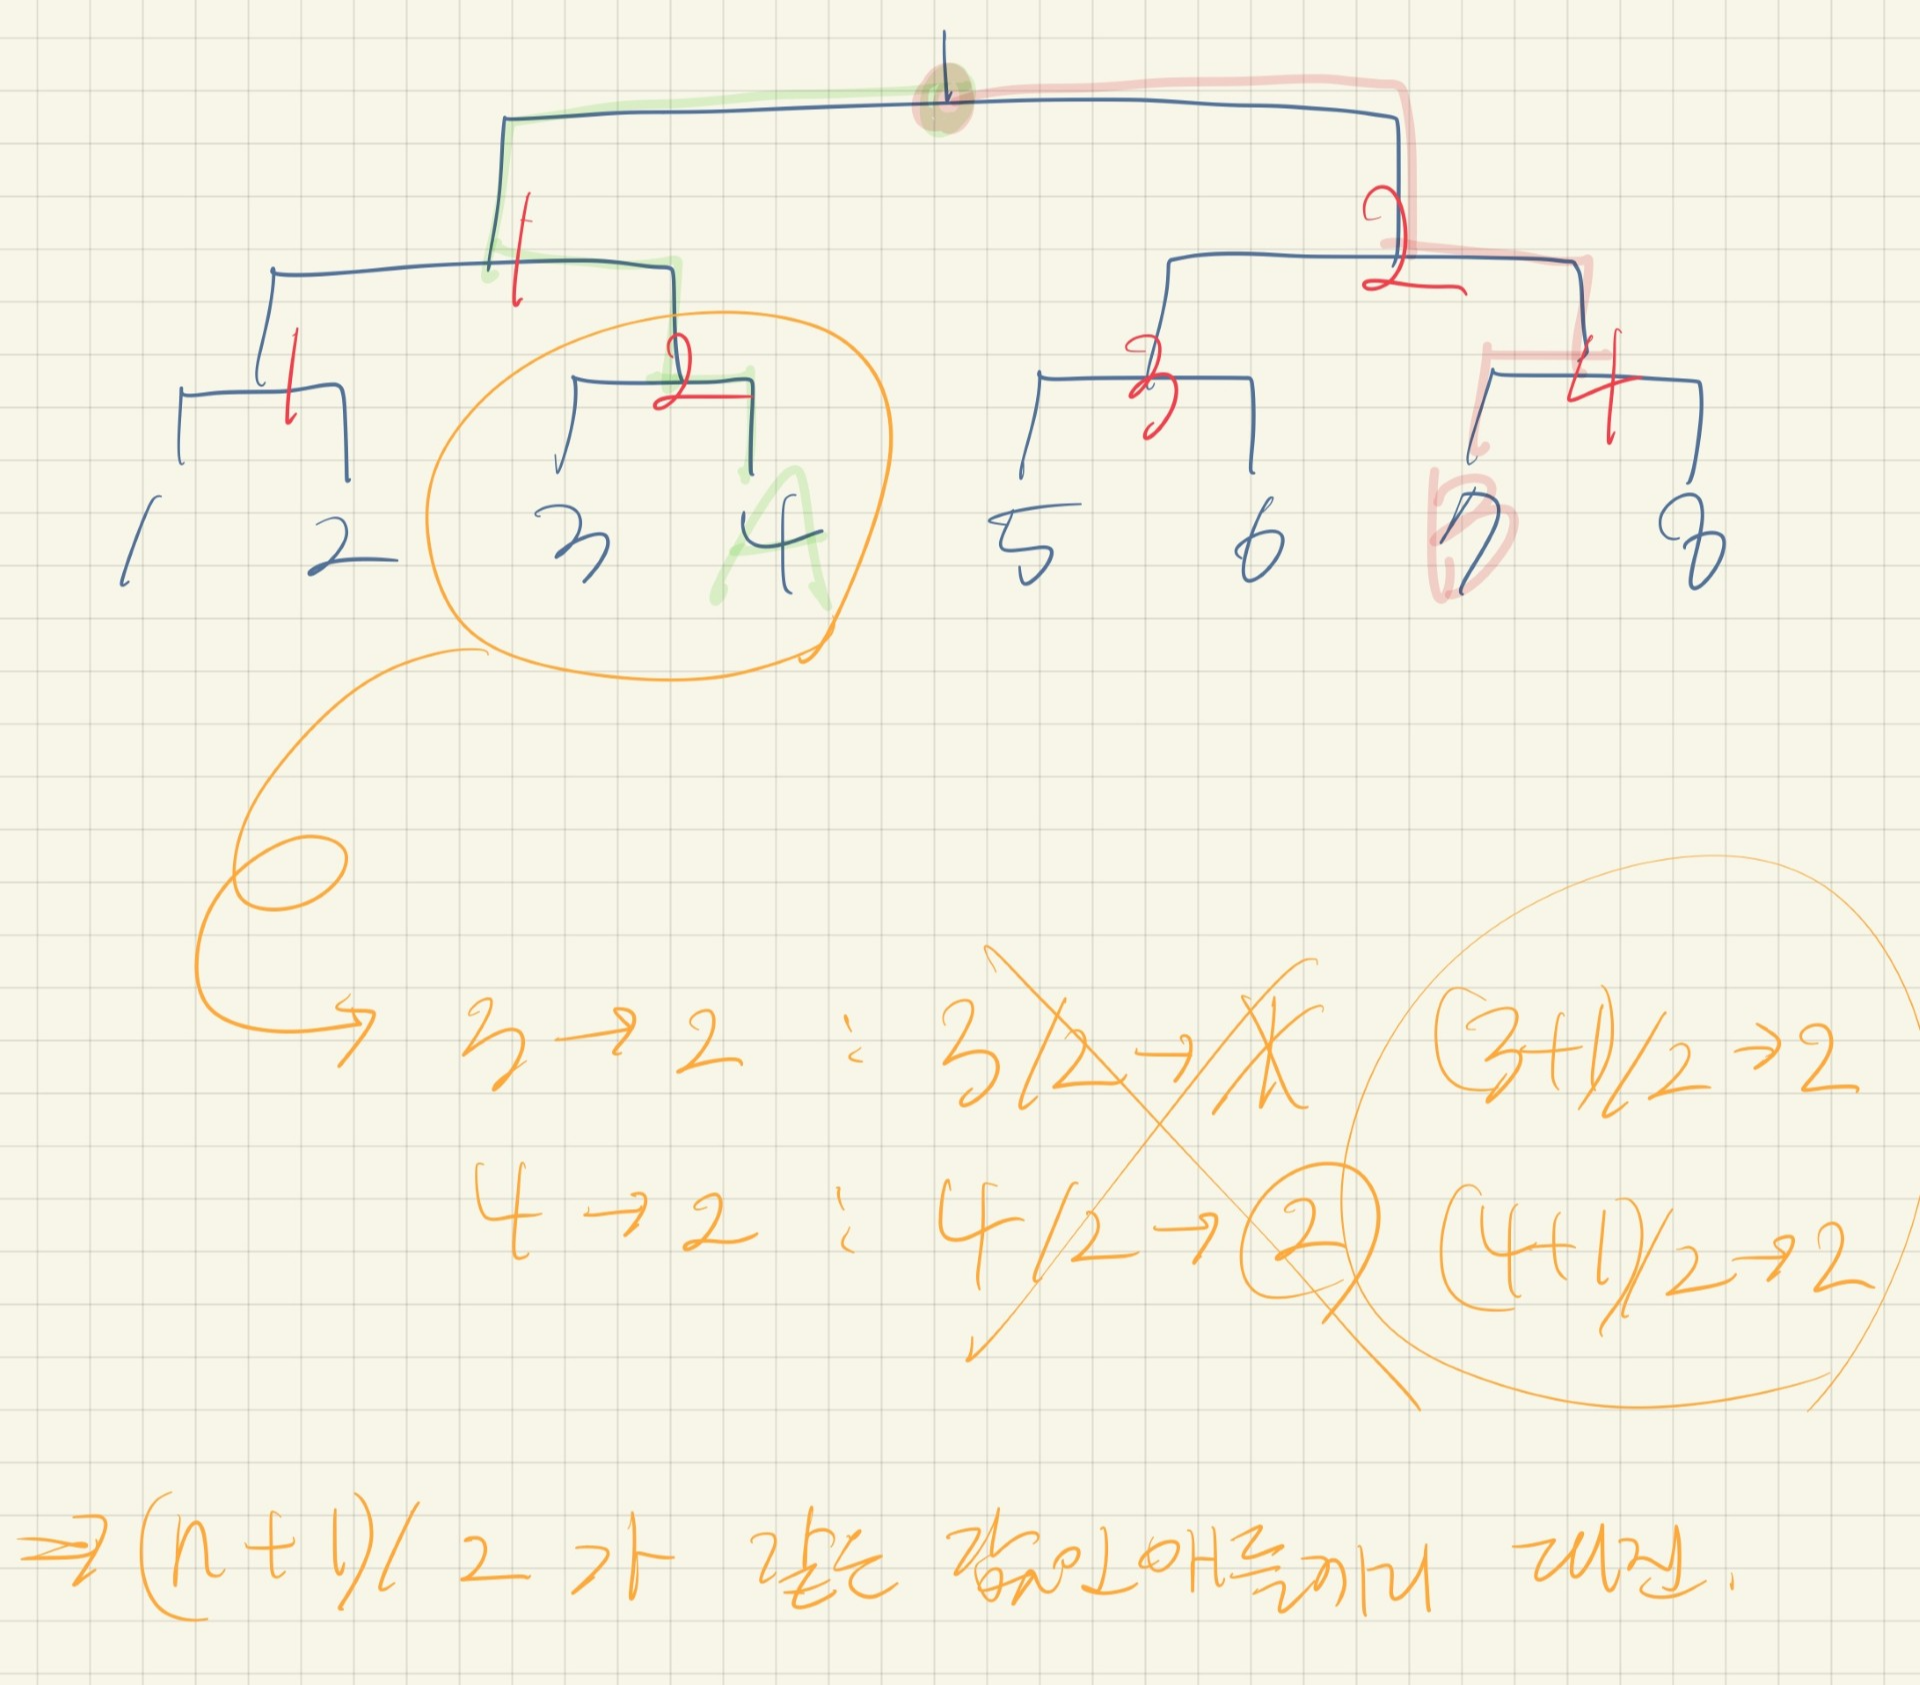 1 2
1 2 3 4
1 2 3 4 A 5 6 7 B 8
3 → 2 : 3/2 → 1 (3+1)/2 → 2
4 → 2 : 4/2 → 2 (4+1)/2 → 2
⇒ (n+1)/2 가 같은 값인 애들끼리 대진.